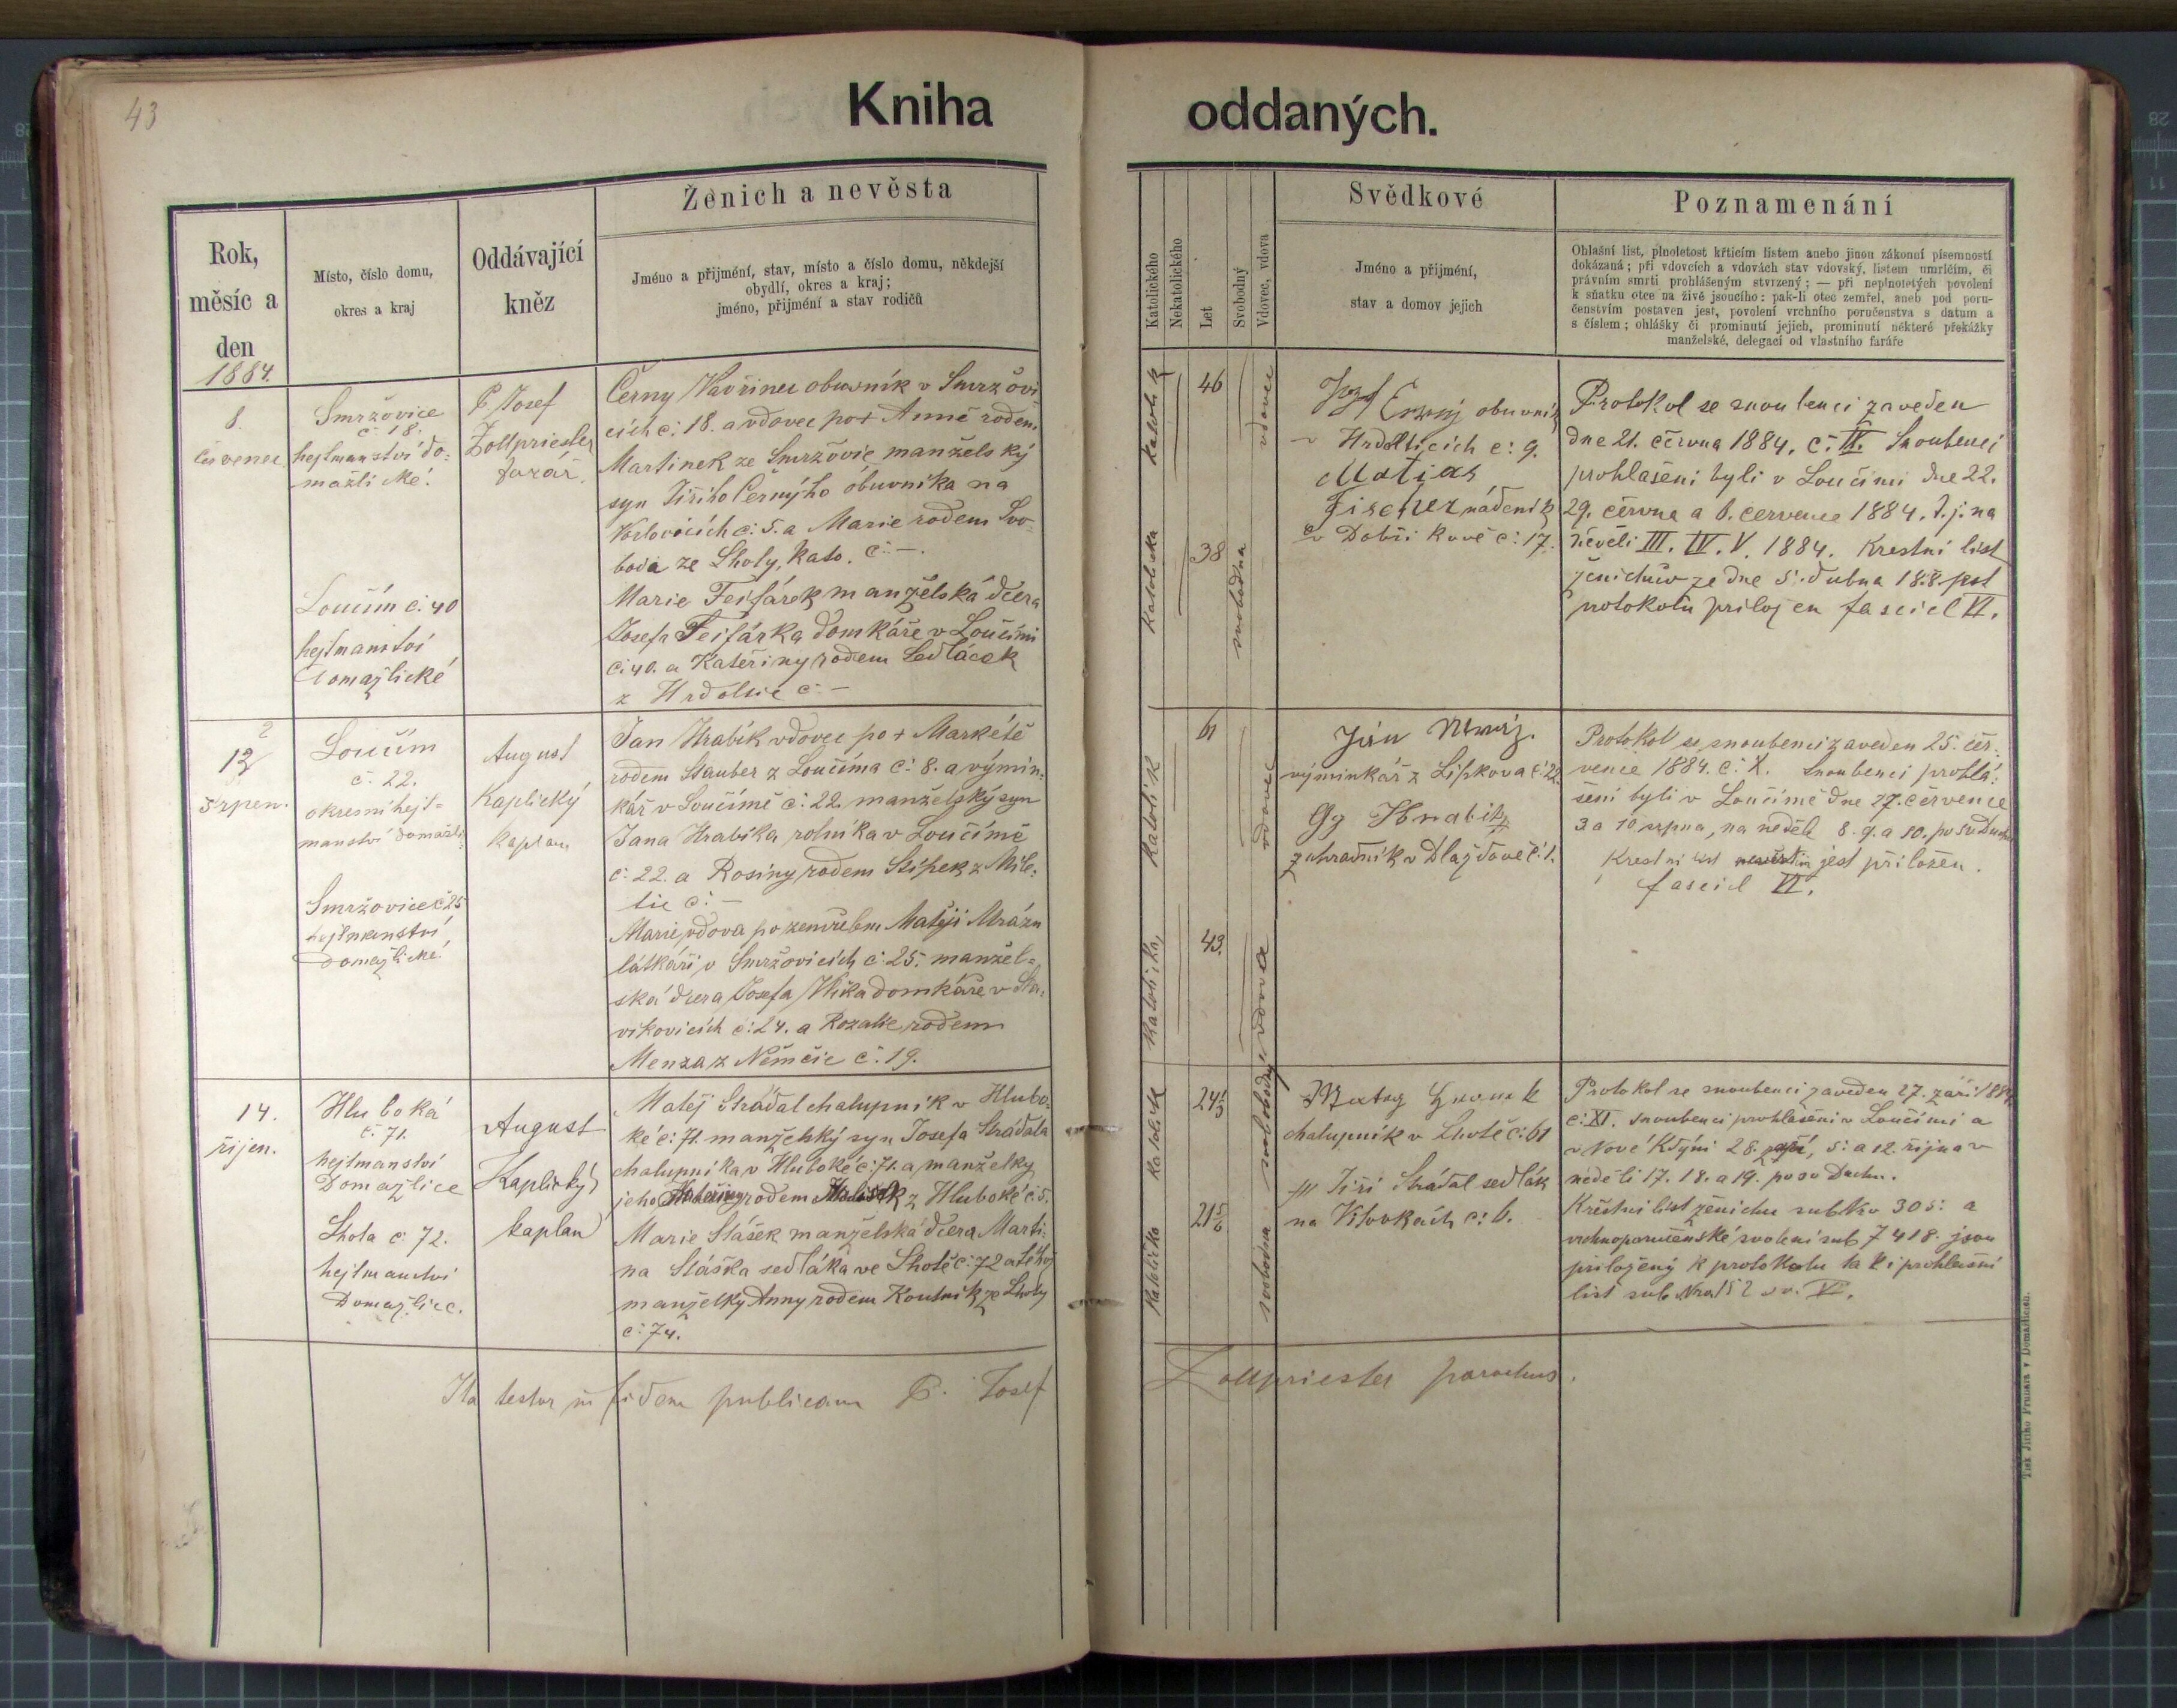 43
Kniha oddaných.
Rok,
měsíc a
den
1884.
Místo, číslo domu,
okres a kraj
Oddávající
kněz
Ženich a nevěsta
Jméno a přijmění, stav, místo a číslo domu, někdejší
obydlí, okres a kraj;
jméno, přijmění a stav rodičů
Katolického
Nekatolického
Let
Svobodný
Vdovec, vdova
Svědkové
Jméno a přijmění,
stav a domov jejich
Poznamenání
Ohlašní list, plnoletost křticím listem anebo jinou zákonní písemností
dokázaná; při vdovcích a vdovách stav vdovský, listem umrlčím, či
právním smrti prohlášeným stvrzený; — při neplnoletých povolení
k sňatku otce na živě jsoucího: pak-li otec zemřel, aneb pod poru-
čenstvím postaven jest, povolení vrchního poručenstva s datum a
s číslem; ohlášky či prominutí jejich, prominutí některé překážky
manželské, delegací od vlastního faráře
8.
červenec
Smržovice
č. 18.
hejtmanství do=
mažlické.
Loučim č. 40
hejtmanství
Domažlické
P. Josef
Zollpriester
farář.
Černý Vavřinec obuvník v Smržovi
cích č: 18. a vdovec po + Anně rodem
Martinek ze Smržovic manželský
syn Jiřího Černýho obuvníka na
č: 5. a Marie rodem Svo=
boda ze Lhoty, č: —.
Marie Feifárek manželská dcera
Josefa Feifárka domkáře v Loučimi
č: 40. a Kateřiny rodem Sedláček
z č: —
katolík
46
vdovec
katolička
38
svobodna
Josef Černý obuvník
v č: 9.
Matias
Fischer nádeník
v Dobříkově č: 17.
Protokol se snoubenci zaveden
dne 21. června 1884. č: IX. Snoubenci
prohlašeni byli v Loučimi dne 22.
29. června a 6. července 1884. t. j. na
neděli III. IV. V. 1884. Krestní list
ženichův ze dne 5. dubna
protokolu priložen fascicl VI.
12
srpen.
Loučim
č. 22.
okresní hejt=
manství domažli
Smržovice č 25
hejtmanství
Domažlické
August
Kaplický
kaplan
Jan Hrabík vdovec po + Markétě
rodem Stauber z Loučima č: 8. a výmin=
kář v Loučimě č: 22. manželský syn
Jana Hrabíka rolníka v Loučimě
č: 22. a Rosiny rodem Stípek z Mile=
tic č: —
Marie vdova po zemřelém Matěji Mrázu
látkáři v Smržovicích č: 25. manžel=
ská dcera Josefa domkáře v Sla=
vikovicích č: 24. a Rozalie rodem
Menza z Němčic č: 19.
katolík
61
vdovec
katolička
43.
vdova
Jiří
výminkář z Liškova č: 22
Gg Hrabik
zahradník v Dlažďově č: 1.
Protokol se snoubenci zaveden 25. čer=
vence 1884. č: X. Snoubenci prohlá=
šeni byli v Loučimě dne 27. července
3 a 10 srpna, na neděli 8. 9. a 10. po sv Duchu
Krestní list jest přiložen.
fascicl VI.
14.
říjen.
Hluboká
č. 71.
hejtmanství
Domažlice
Lhota č: 72.
hejtmanství
Domažlice.
August
Kaplický
kaplan
Matěj Strádal chalupník v Hlubo=
ké č: 71. manželský syn Josefa Strádala
chalupníka v Hluboké č: 71. a manželky
jeho Kateřiny rodem z Hluboké č: 5.
Marie Slášek manželská dcera Marti=
na Sláška sedláka ve Lhotě č: 72 a téhož
manželky Anny rodem Koutník ze Lhoty
č: 74.
katolík
24
svobodný
katolička
21
svobodna
chalupník v Lhotě č: 61
Jiří Strádal sedlák
na č: 6.
Protokol se snoubenci zaveden 27. září 1884
č: XI. Snoubenci prohlašeni v Loučimi a
v Nové Kdýni 28. září, 5. a 12. října v
neděli 17. 18. a 19. po sv Duchu.
Křestní list ženicha sub Nro 305: a
vrchnoporučenské svolení sub 7418. jsou
priložený k protokolu ta k i prohlašní
list sub Nro 152 VI.
Ita testor in fidem publicam P. Josef
Zollpriester parochus.
Tisk Jiřího Prunara v Domažlicích.